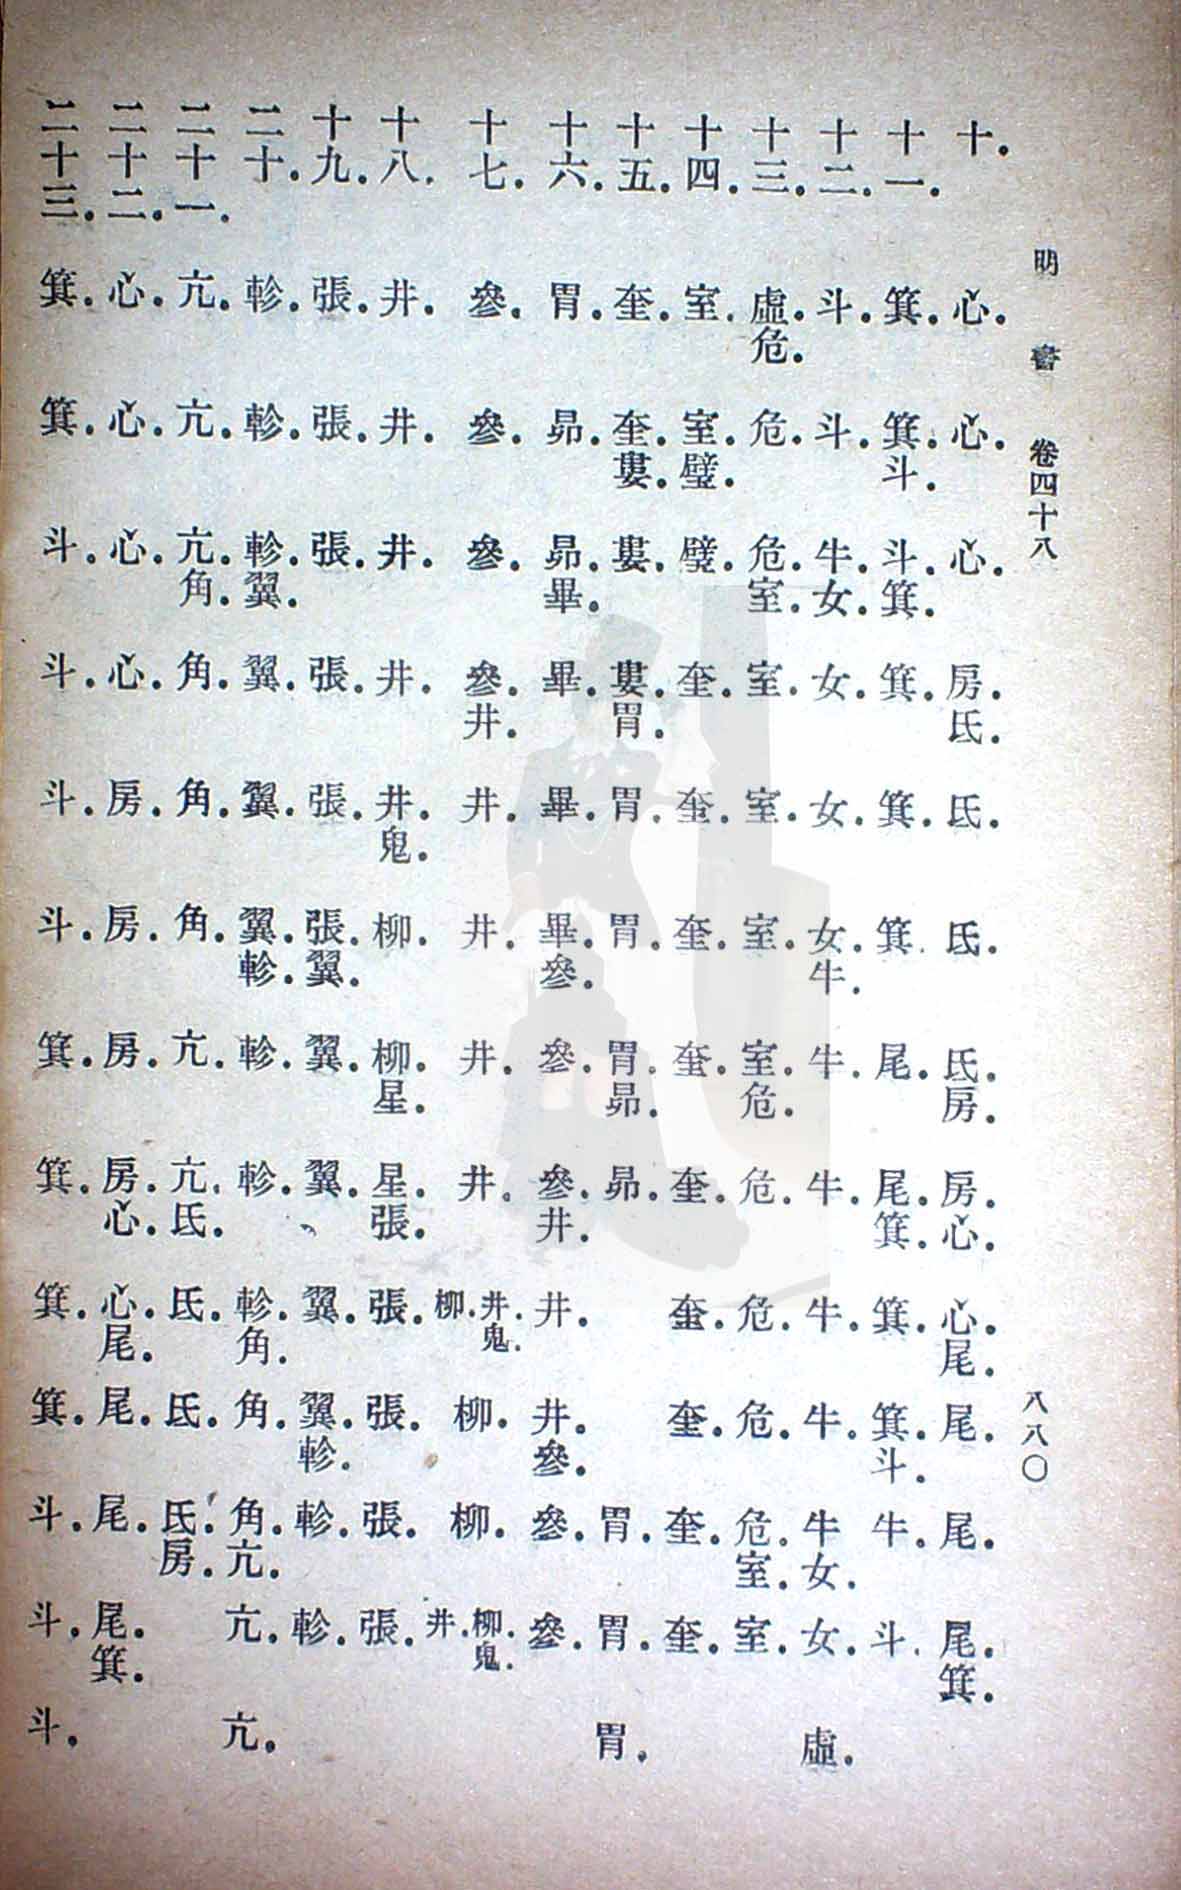 明書 卷四十八 八八〇
十。心。心。心。房。氐。氐。氐。氐。房。房。心。心。尾。尾。尾。尾。箕。
十一。箕。箕。斗。斗。箕。箕。箕。箕。尾。尾。箕。箕。箕。斗。牛。斗。
十二。斗。斗。牛。女。女。女。女。牛。牛。牛。牛。牛。牛。女。女。虛。
十三。虛。危。危。危。室。室。室。室。室。危。危。危。危。危。室。室。
十四。室。室。璧。璧。奎。奎。奎。奎。奎。奎。奎。奎。奎。
十五。奎。奎。婁。婁。婁。胃。胃。胃。胃。昴。昴。胃。胃。胃。
十六。胃。昴。昴。畢。畢。畢。畢。參。參。參。井。井。井。參。參。參。
十七。參。參。參。參。井。井。井。井。井。井。鬼。柳。柳。柳。柳。鬼。井。
十八。井。井。井。井。井。鬼。柳。柳。星。星。張。張。張。張。張。
十九。張。張。張。張。張。張。翼。翼。翼。翼。翼。軫。軫。軫。
二十。軫。軫。軫。翼。翼。翼。翼。軫。軫。軫。軫。角。角。角。亢。亢。亢。
二十一。亢。亢。亢。角。角。角。角。亢。亢。氐。氐。氐。氐。房。
二十二。心。心。心。心。房。房。房。房。心。心。尾。尾。尾。尾。箕。
二十三。箕。箕。斗。斗。斗。斗。箕。箕。箕。箕。斗。斗。斗。